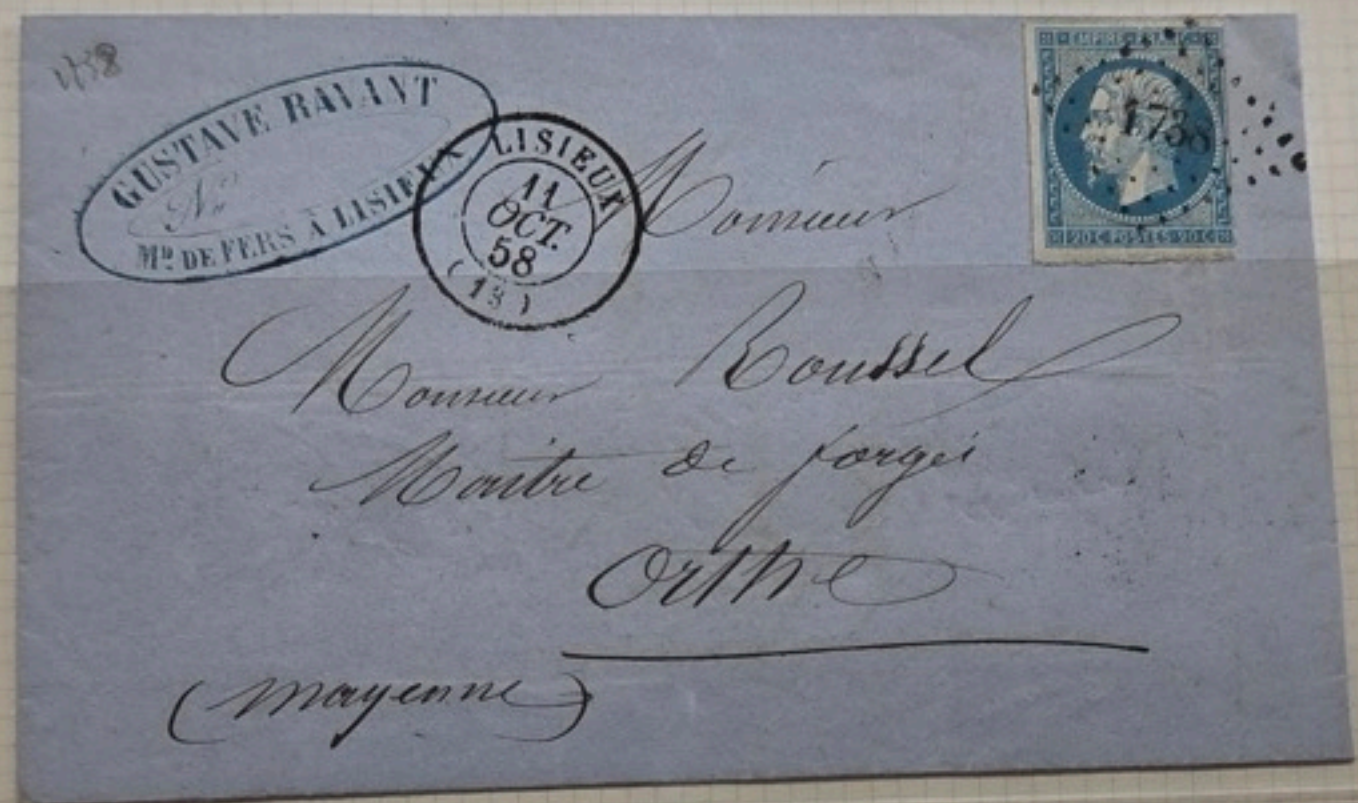 1738
GUSTAVE RAVANT
No
MD DE FERS À LISIEUX
LISIEUX
11
OCT.
58
(13)
EMPIRE FRANC
1738
20 C POSTES 20 C
Monsieur
Monsieur Roussel
Maitre de forges
Orthe
(Mayenne)